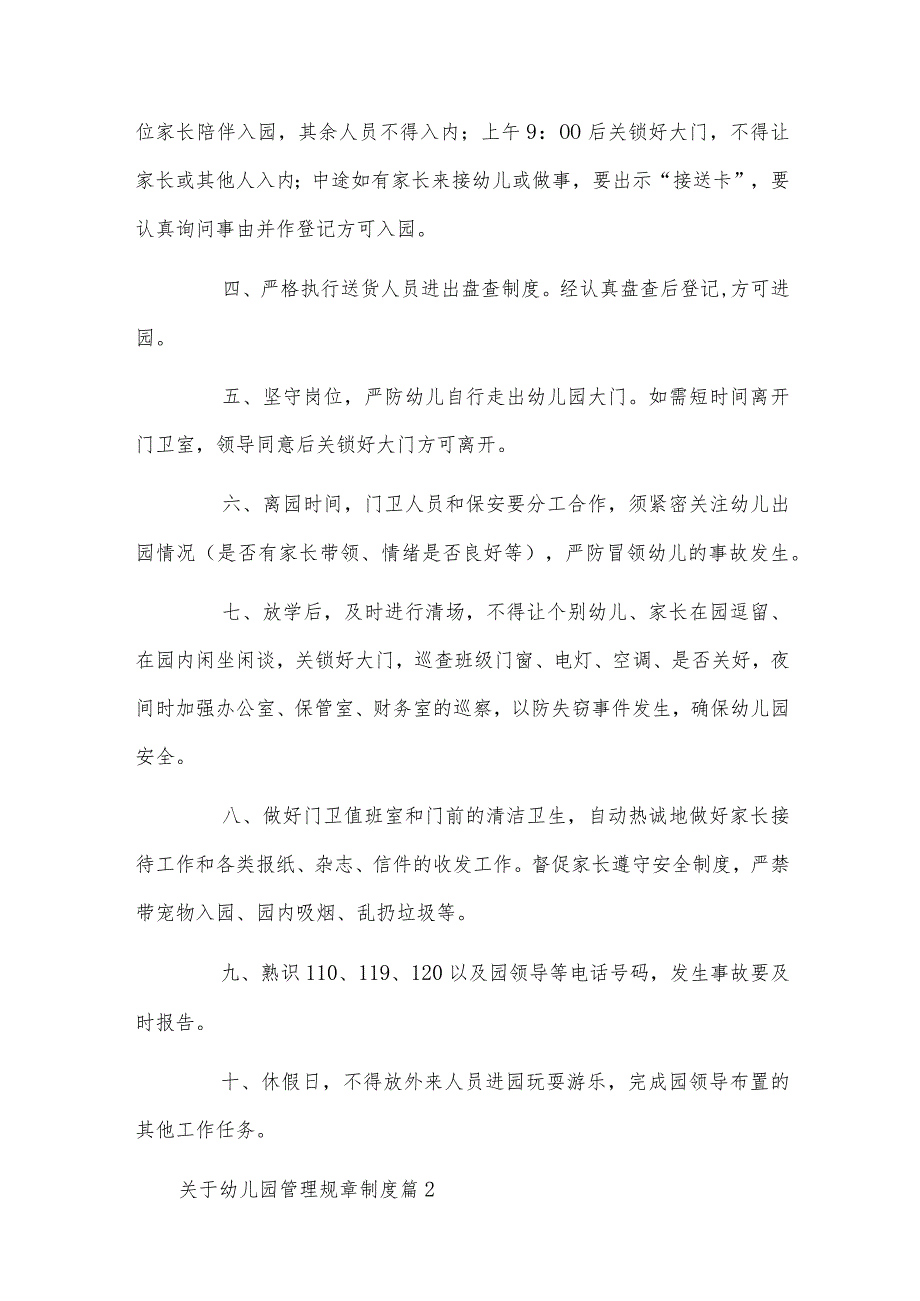 位家长陪伴入园，其余人员不得入内；上午 9：OO 后关锁好大门，不得让
家长或其他人入内；中途如有家长来接幼儿或做事，要出示“接送卡”，要
认真询问事由并作登记方可入园。
四、严格执行送货人员进出盘查制度。经认真盘查后登记,方可进
园。
五、坚守岗位，严防幼儿自行走出幼儿园大门。如需短时间离开
门卫室，领导同意后关锁好大门方可离开。
六、离园时间，门卫人员和保安要分工合作，须紧密关注幼儿出
园情况（是否有家长带领、情绪是否良好等），严防冒领幼儿的事故发生。
七、放学后，及时进行清场，不得让个别幼儿、家长在园逗留、
在园内闲坐闲谈，关锁好大门，巡查班级门窗、电灯、空调、是否关好，夜
间时加强办公室、保管室、财务室的巡察，以防失窃事件发生，确保幼儿园
安全。
八、做好门卫值班室和门前的清洁卫生，自动热诚地做好家长接
待工作和各类报纸、杂志、信件的收发工作。督促家长遵守安全制度，严禁
带宠物入园、园内吸烟、乱扔垃圾等。
九、熟识 110、119、120 以及园领导等电话号码，发生事故要及
时报告。
十、休假日，不得放外来人员进园玩耍游乐，完成园领导布置的
其他工作任务。
关于幼儿园管理规章制度篇 2